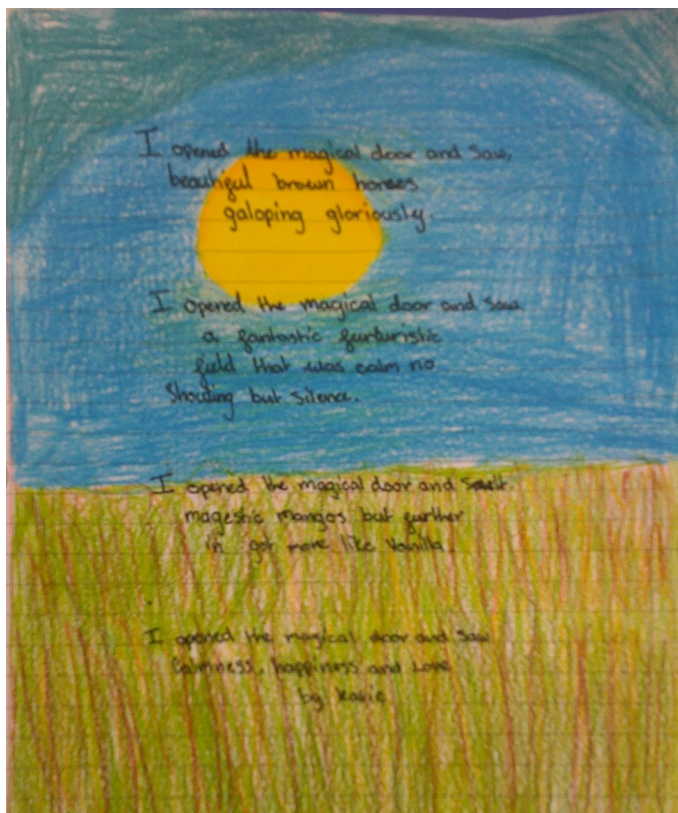 I opened the magical door and saw,
beautiful brown horses
galoping gloriously.
I opened the magical door and saw
a fantastic furturistic
field that was calm no
Shouting but silence.
I opened the magical door and
magestic mangos but further
in got more like Vanilla.
I opened the magical door and saw
Calmness, happiness and Love
by Katie